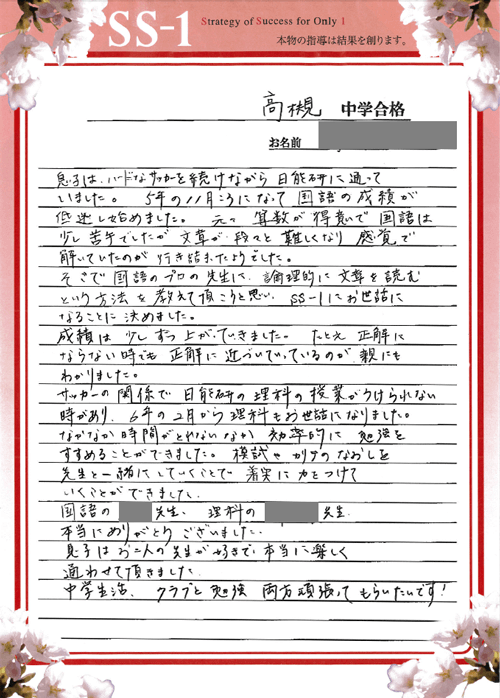 SS-1
Strategy of Success for Only 1
本物の指導は結果を創ります。
高槻 中学合格
お名前
息子は、ハードなサッカーを続けながら日能研に通って
いました。5年の11月ころになって国語の成績が
低迷し始めました。元々算数が得意で国語は
少し苦手でしたが文章が段々と難しくなり感覚で
解いていたのが行き詰まったようでした。
そこで国語のプロの先生に、論理的に文章を読む
という方法を教えて頂こうと思い、SS-1にお世話に
なることに決めました。
成績は少しずつ上がっていきました。たとえ正解に
ならない時でも正解に近づいていっているのが親にも
わかりました。
サッカーの関係で日能研の理科の授業がうけられない
時があり、6年の2月から理科もお世話になりました。
なかなか時間がとれないなか効率的に勉強を
すすめることができました。模試やカリテのなおしを
先生と一緒にしていくことで着実に力をつけて
いくことができました。
国語の 先生、理科の 先生
本当にありがとうございました。
息子はお二人の先生が好きで、本当に楽しく
通わせて頂きました。
中学生活、クラブと勉強両方頑張ってもらいたいです!